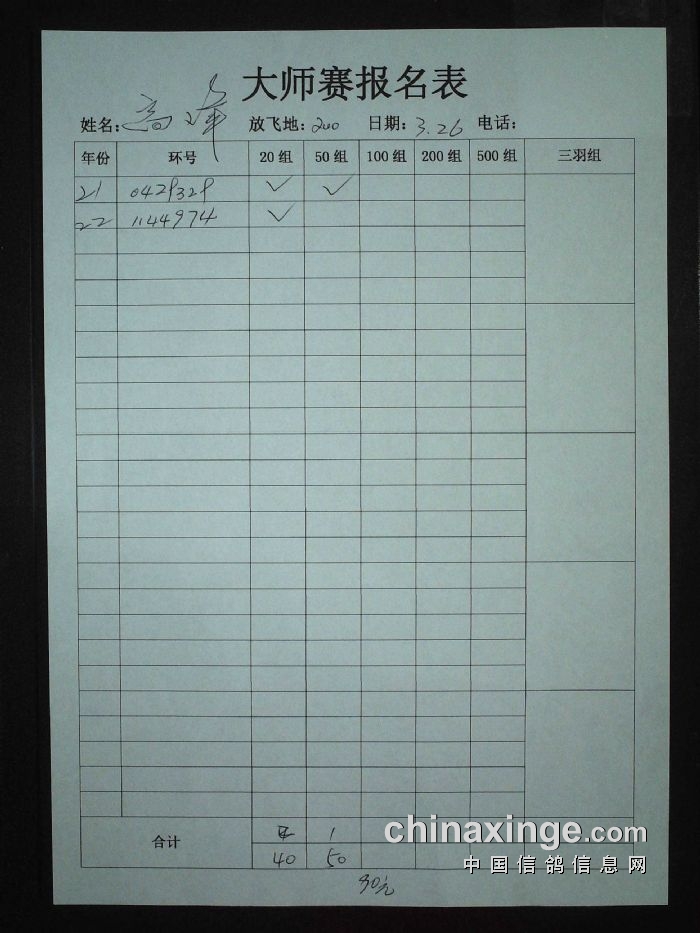 大师赛报名表
姓名: 高峰 放飞地: 200 日期: 3.26 电话:
年份 环号 20 组 50 组 100 组 200 组 500 组 三羽组
21 0429329 ✓ ✓
22 1144974 ✓
合计 1
40 50
90元
chinaxinge.com
中国信鸽信息网